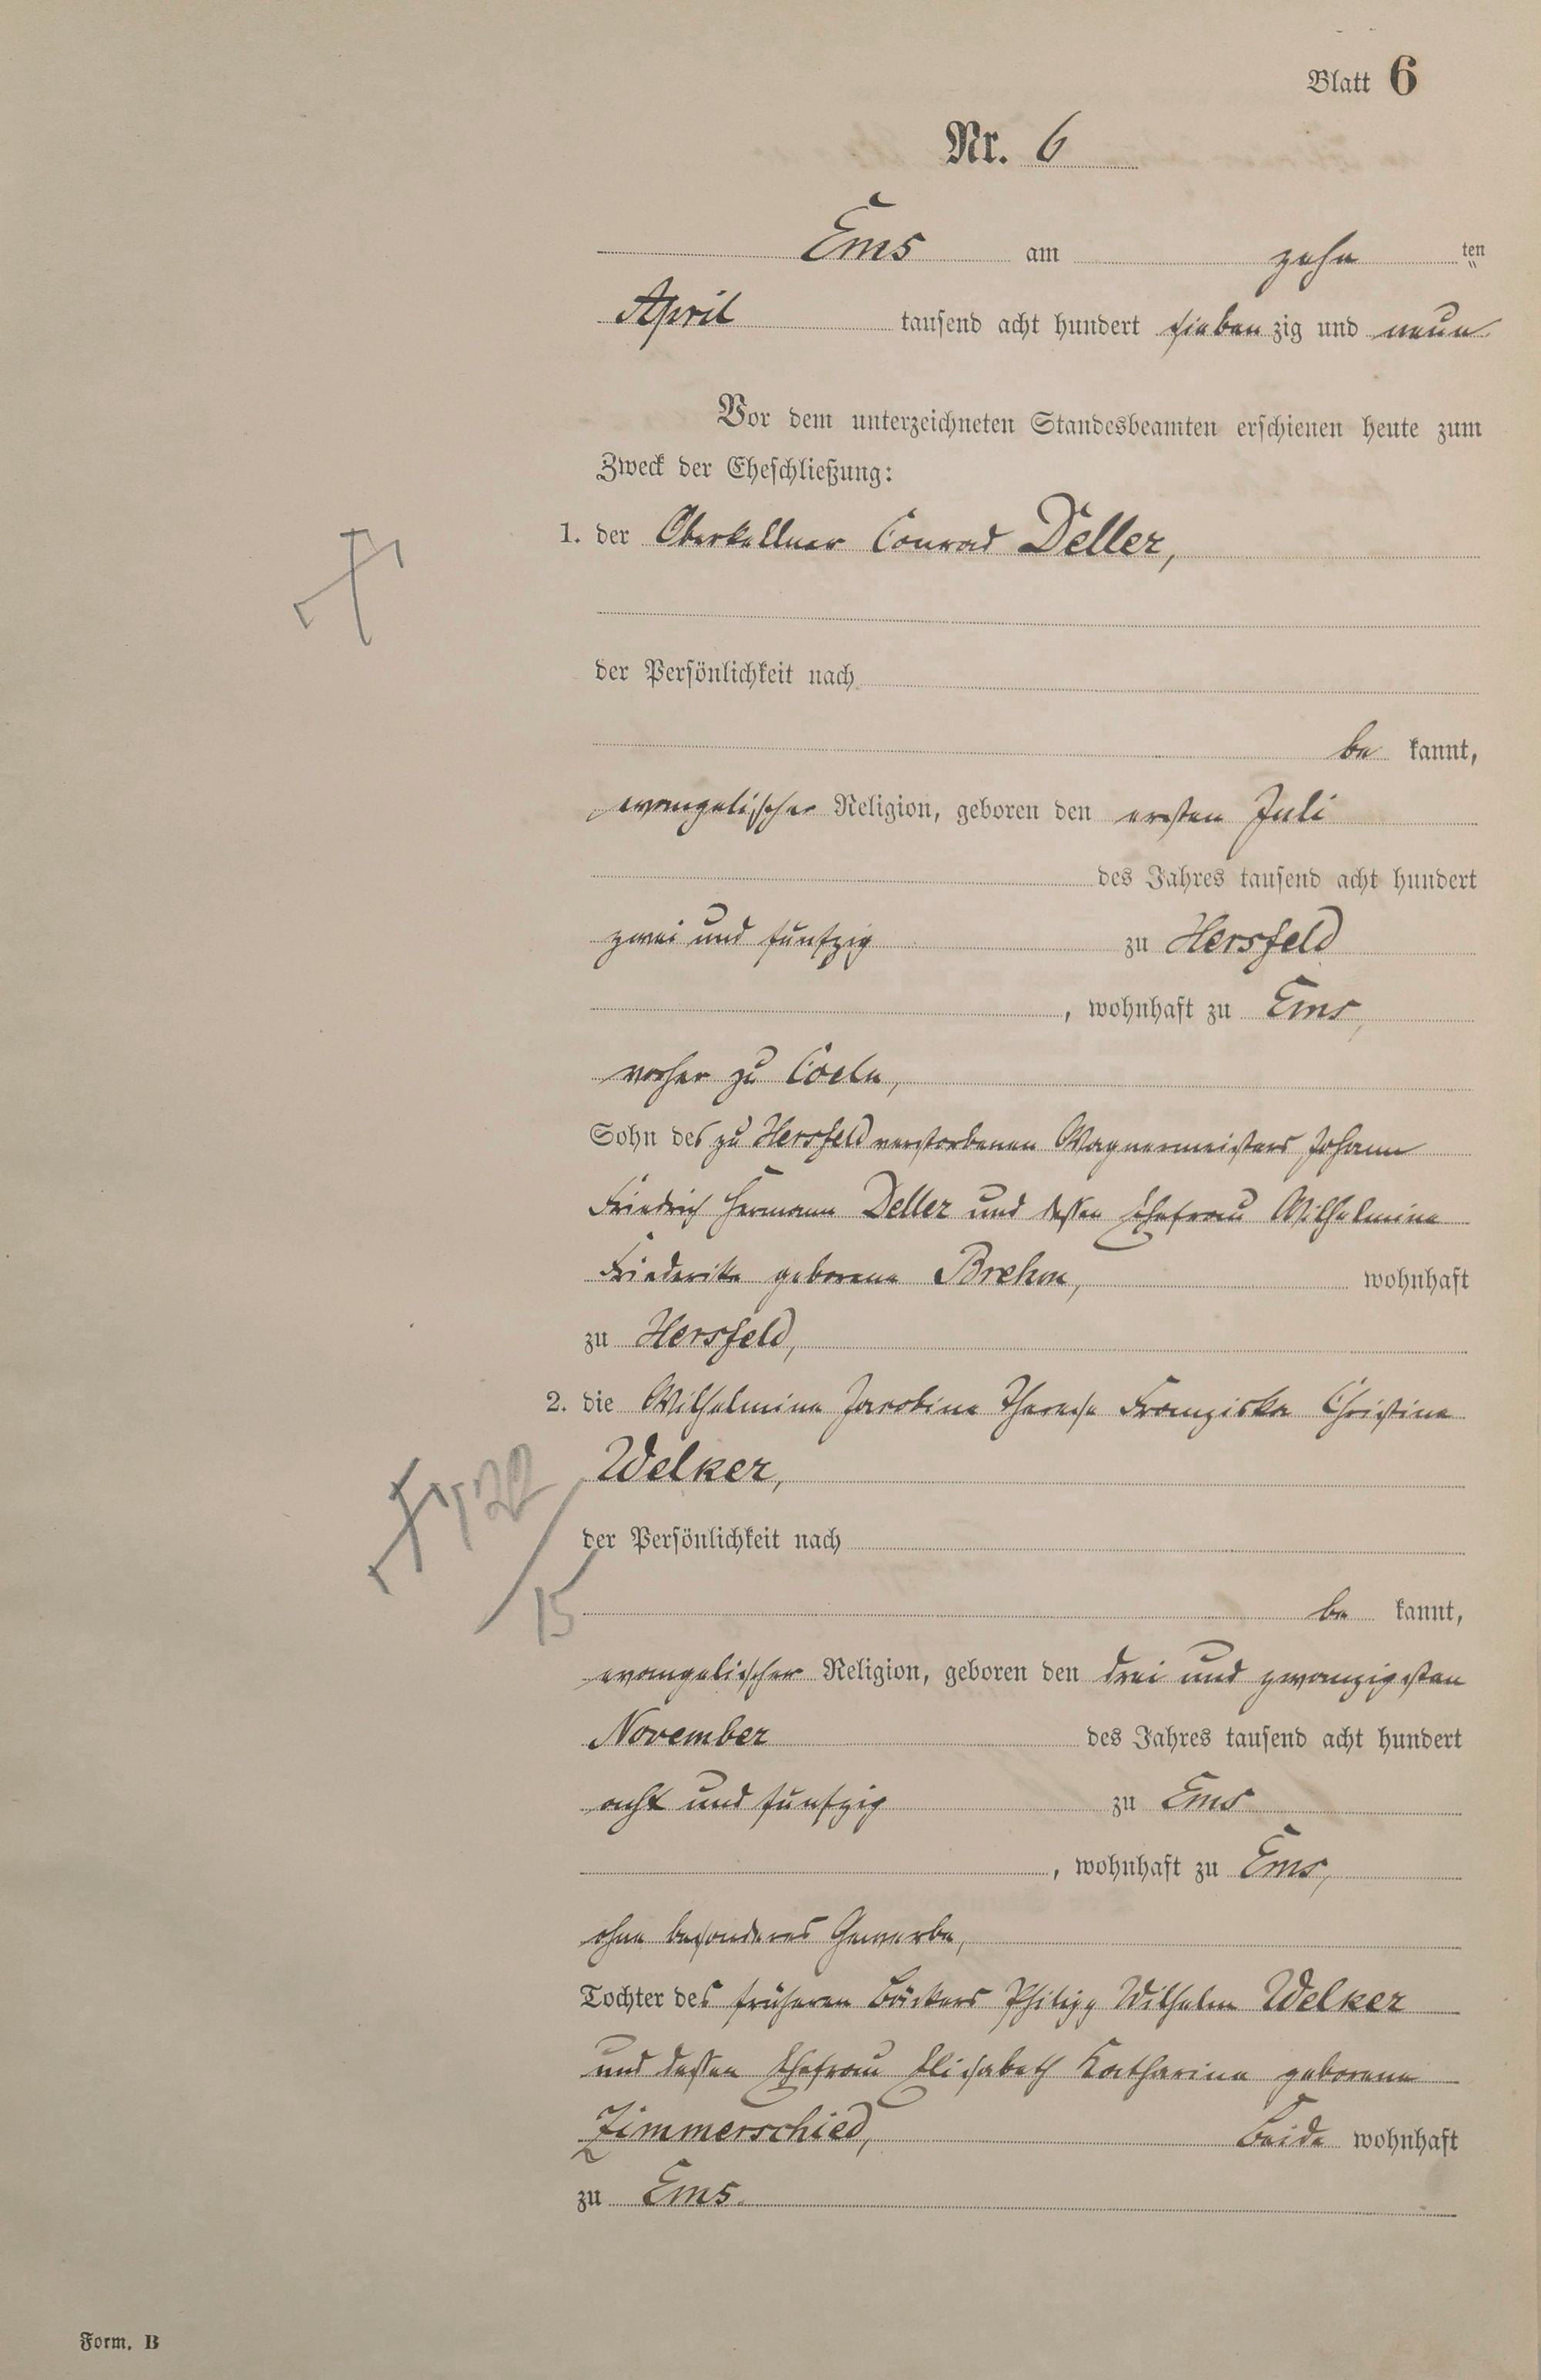 Blatt 6
Nr. 6
Ems am zehn ten
April tausend acht hundert siebenzig und neun
Vor dem unterzeichneten Standesbeamten erschienen heute zum
Zweck der Eheschließung:
1. der Oberkellner Conrad Deller,
der Persönlichkeit nach
be kannt,
evangelischer Religion, geboren den ersten Juli
des Jahres tausend acht hundert
zwei und fünfzig zu Hersfeld
, wohnhaft zu Ems,
vorher zu Coeln,
Sohn des zu Hersfeld verstorbenen Wagnermeisters Johann
Friedrich Hermann Deller und dessen Ehefrau Wilhelmine
Friederike geborene Brehm, wohnhaft
zu Hersfeld,
2. die Wilhelmine Jacobine Therese Franziska Christine
Welker,
der Persönlichkeit nach
15
be kannt,
evangelischer Religion, geboren den drei und zwanzigsten
November des Jahres tausend acht hundert
acht und fünfzig zu Ems
, wohnhaft zu Ems,
ohne besonderes Gewerbe,
Tochter des früheren Bäckers Philipp Wilhelm Welker
und dessen Ehefrau Elisabeth Katharina geborene
Zimmerschied, Beide wohnhaft
zu Ems.
Form. B